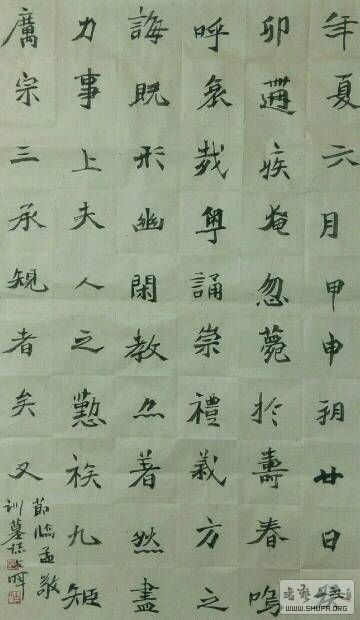 年夏六月甲申朔廿日
卯遘疾奄忽薨於壽春嗚
呼哀哉粵誦崇禮義方之
誨既形幽閑教亦著然盡
力事上夫人之懃九姬
宗三承規者矣又
節臨孟敬
訓墓誌暉
WWW.SHUFA.ORG